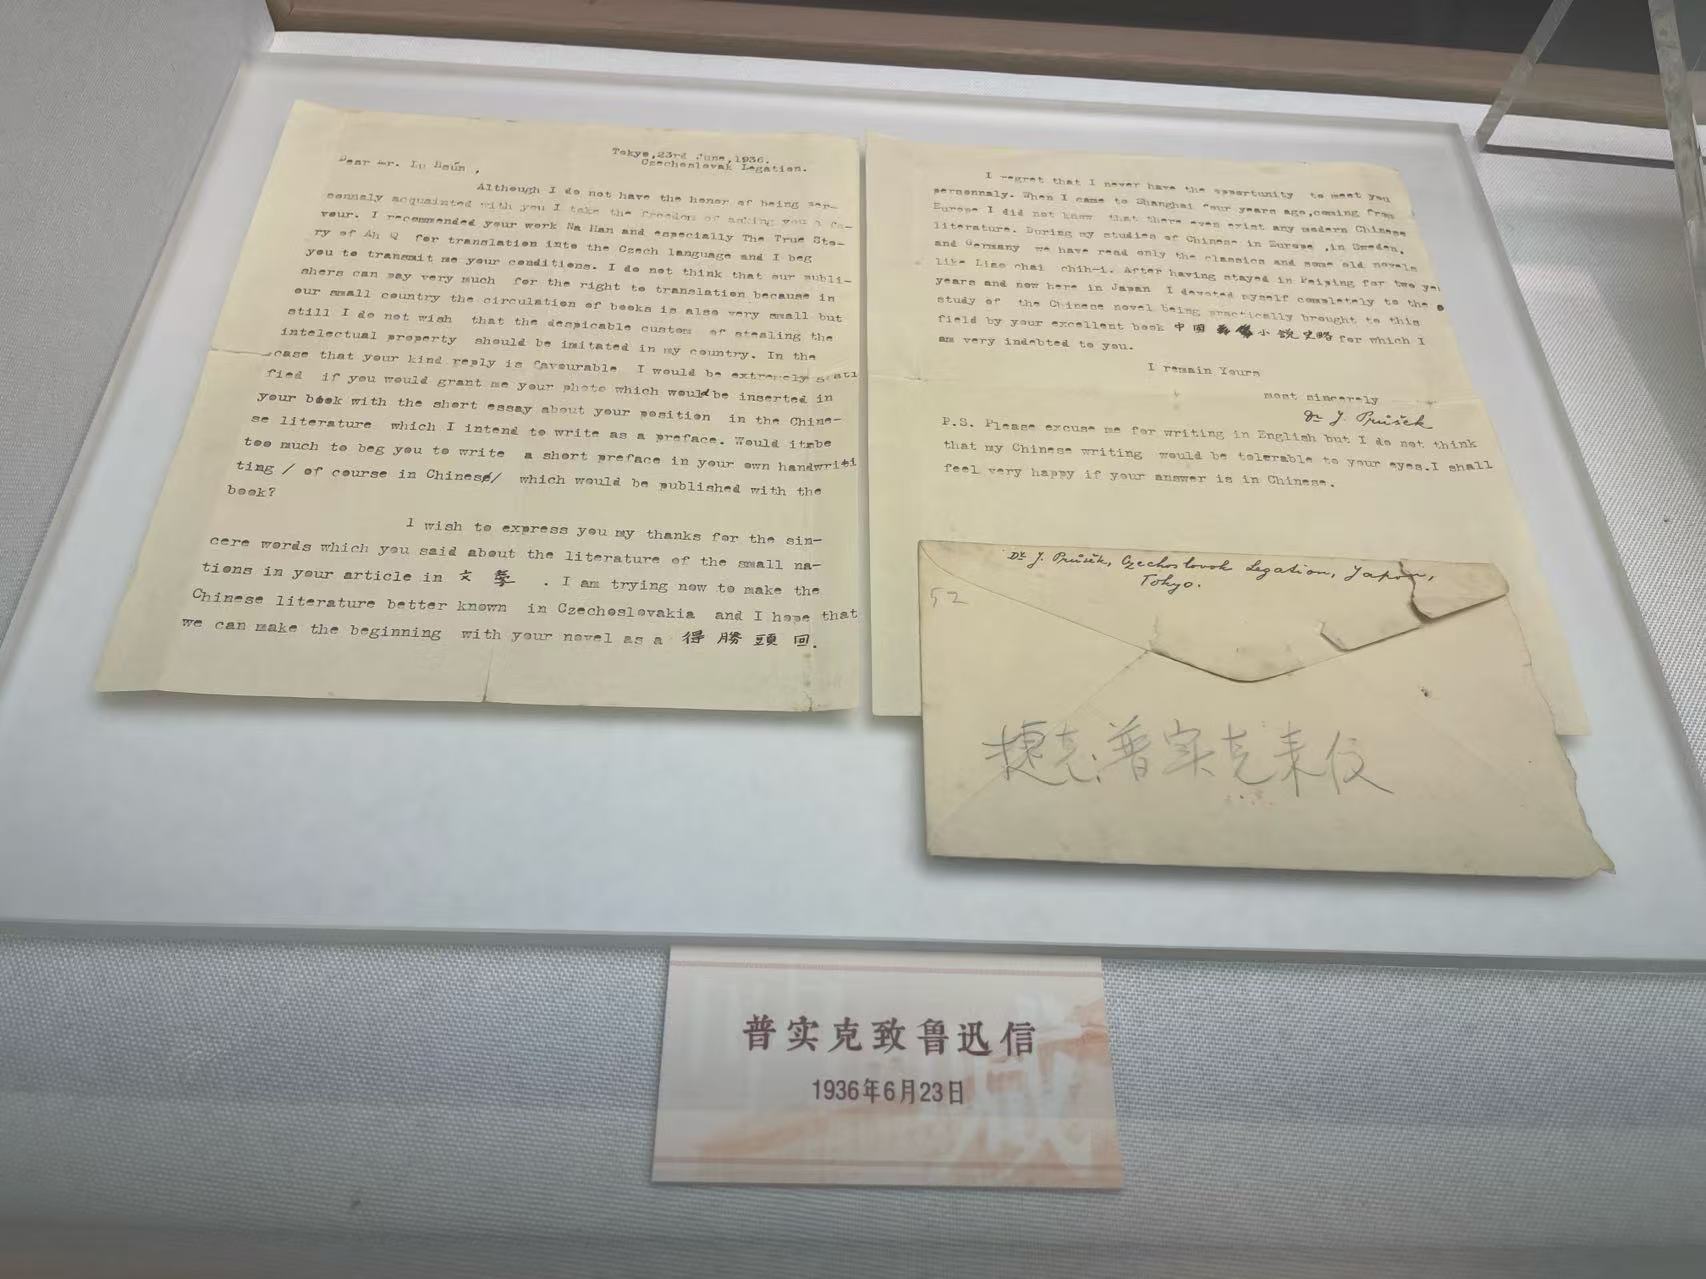 Tokyo,23rd June,1936.
Czechoslovak Legation.
Dear Mr. Lu Hsün ,
Although I do not have the honor of being per-
sonnaly acquainted with you I take the freedom of asking you a fa-
vour. I recommended your work Na Han and especially The True Sto-
ry of Ah Q for translation into the Czech language and I beg
you to transmit me your conditions. I do not think that our publi-
shers can pay very much for the right to translation because in
our small country the circulation of books is also very small but
still I do not wish that the despicable custom of stealing the
intelectual property should be imitated in my country. In the
case that your kind reply is favourable I would be extremely grati
fied if you would grant me your photo which would be inserted in
your book with the short essay about your position in the Chine-
se literature which I intend to write as a preface. Would it be
too much to beg you to write a short preface in your own handwriti
ting / of course in Chinese/ which would be published with the
book?
I wish to express you my thanks for the sin-
cere words which you said about the literature of the small na-
tions in your article in 文 學 . I am trying now to make the
Chinese literature better known in Czechoslovakia and I hope that
we can make the beginning with your novel as a 得 勝 頭 回.
I regret that I never have the opportunity to meet you
personnaly. When I came to Shanghai four years ago,coming from
Europe I did not know that there even exist any modern Chinese
literature. During my studies of Chinese in Europe ,in Sweden,
and Germany we have read only the classics and some old novels
like Liao chai chih-i. After having stayed in Peiping for two ye
years and now here in Japan I devoted myself completely to the
study of the Chinese novel being practically brought to this
field by your excellent book 中國 小說史略 for which I
am very indebted to you.
I remain Yours
most sincerely
Dr J. Průšek
P.S. Please excuse me for writing in English but I do not think
that my Chinese writing would be tolerable to your eyes.I shall
feel very happy if your answer is in Chinese.
Dr. J. Průšek, Czechoslovak Legation, Japan,
Tokyo.
52
捷克:普实克来信
普实克致鲁迅信
1936年6月23日